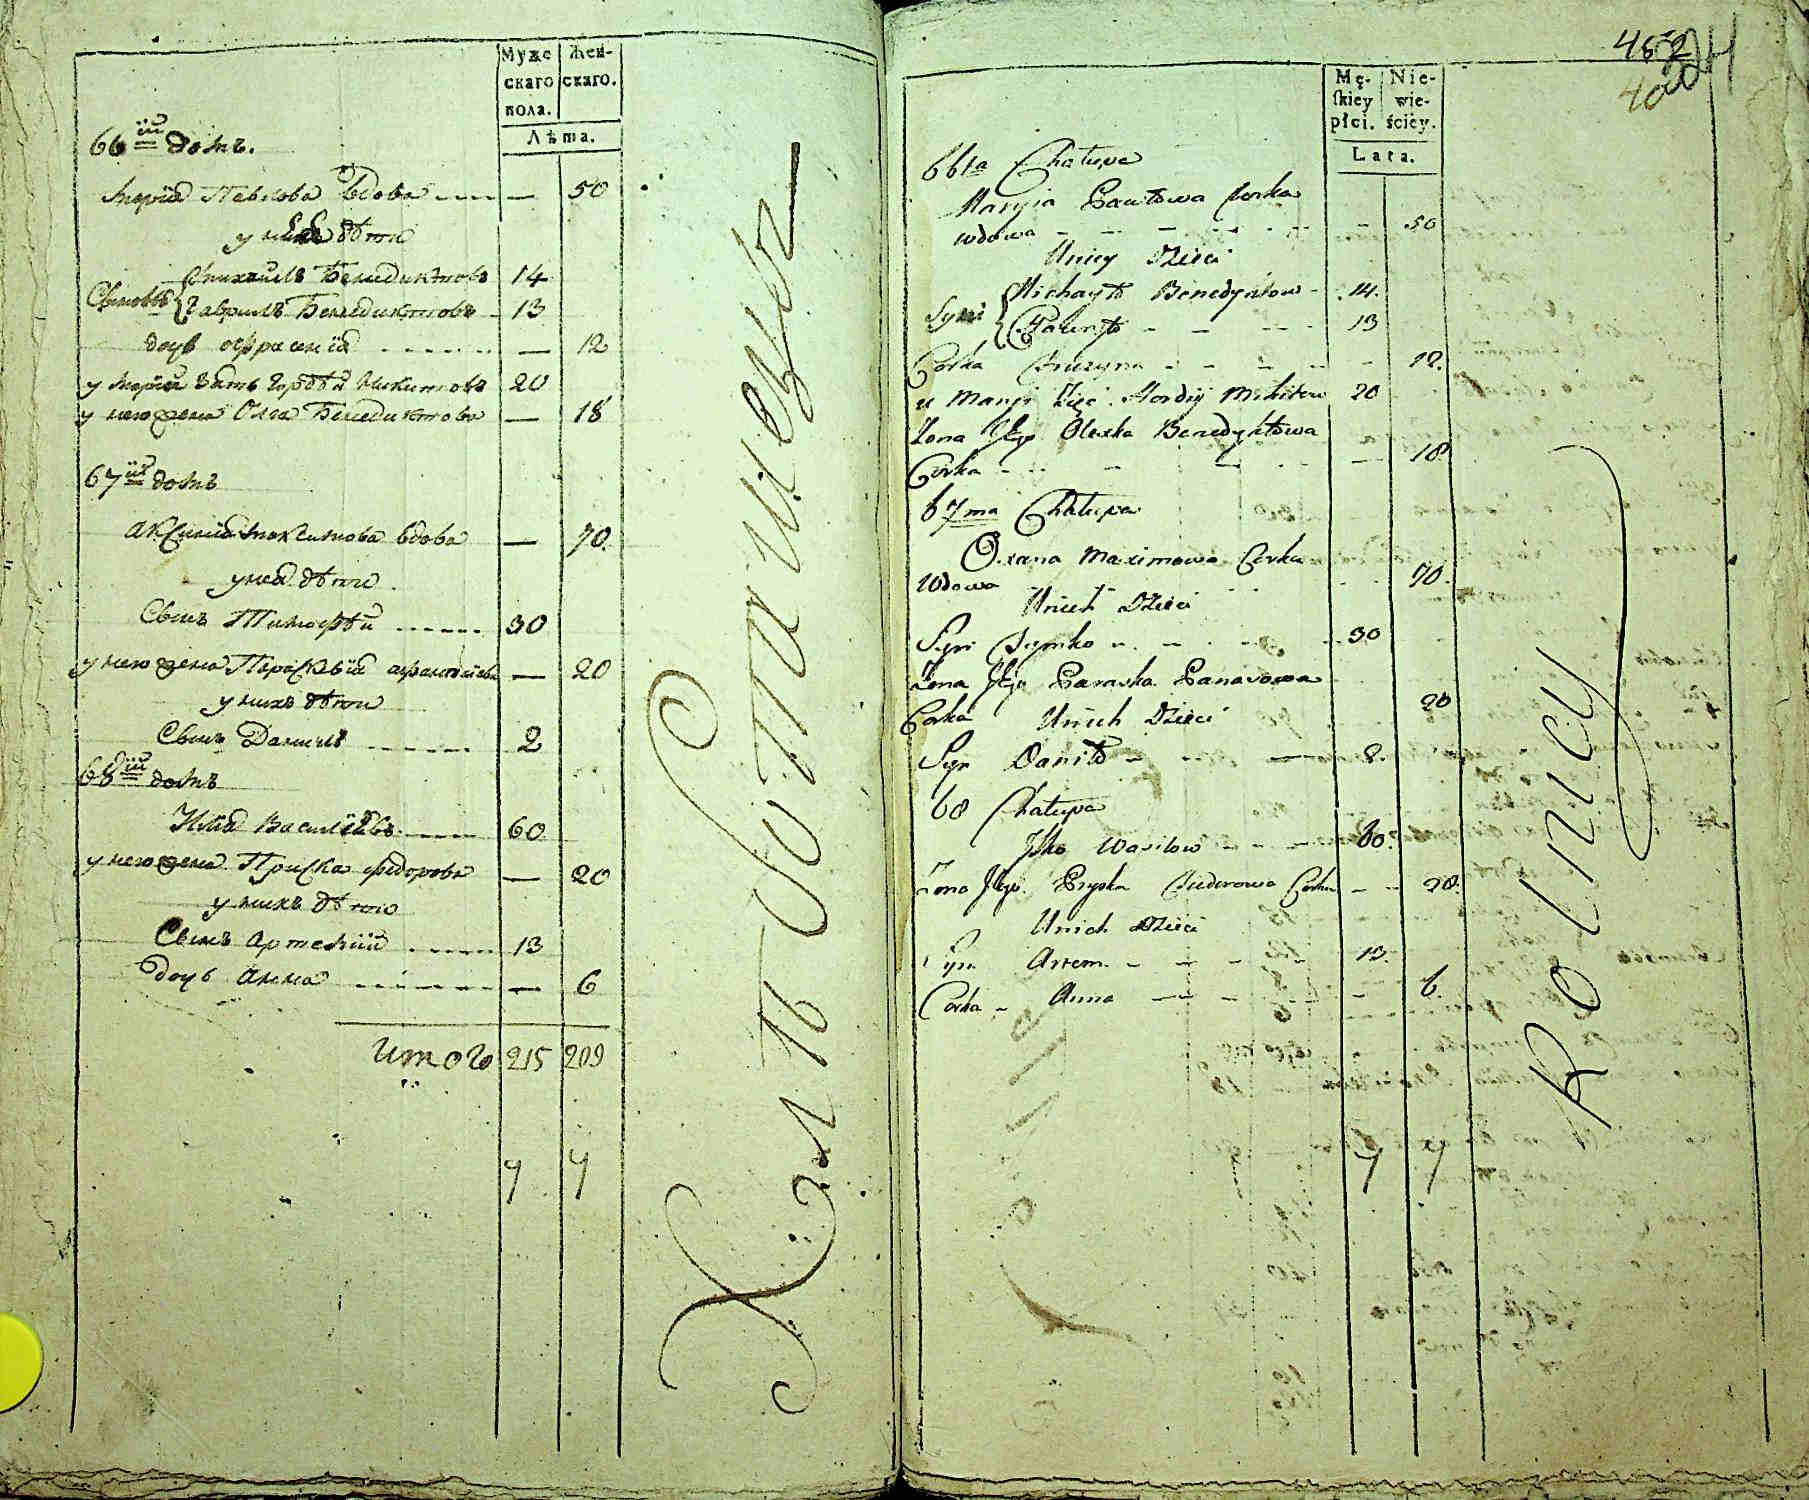 Муже
скаго
пола.
Жен-
скаго.
Лѣта.
66ій домъ.
Марія Павлова вдова — 50
у нея дѣти
Сыновья
Михаилъ Бенедиктовъ 14
Гаврилъ Бенедиктовъ 13
дочь Ефросинія — 12
у Маріи зять Гордѣй Никитовъ 20
у него жена Олга Бенедиктова — 18
67ій домъ
Аксинія Максимова вдова — 70
у нея дѣти
Сынъ Тимофѣй 30
у него жена Параскѣвія — 20
у нихъ дѣти
Сынъ Данилъ 2
68ій домъ
Илія Василіевъ 60
у него женаПриска Федорова — 20
у нихъ дѣти
Сынъ Артемій 13
дочь Анна — 6
итого 215 209
Хлѣбопашецъ
452
Mę-
skiey
płci.
Nie-
wie-
ściey.
Lata.
66ta Chałupa
Maryia Pawłowa Corka
wdowa - 50
Uniey Dzieci
Syni
Michayło Benedyktow 14.
Hawryło 13
Corka - 12.
u Maryi Zięć Hordiy Mikitow 20
Żona Jego Olexka Benedyktowa
Corka - 18
67ma Chałupa
Oxana Maximowa Corka
Wdowa - 70.
Unich Dzieci
Syn Tymko 30
Żona Jego Paraska Panasowa
Corka 20
Unich Dzieci
Syn Daniło 2.
68 Chałupa
Jlko Wasilow 60.
Żona Jego Pryska Fiedorowa Corka - 20.
Unich Dzieci
Syn Artem 13.
Corka Anna - 6.
Rolnicy